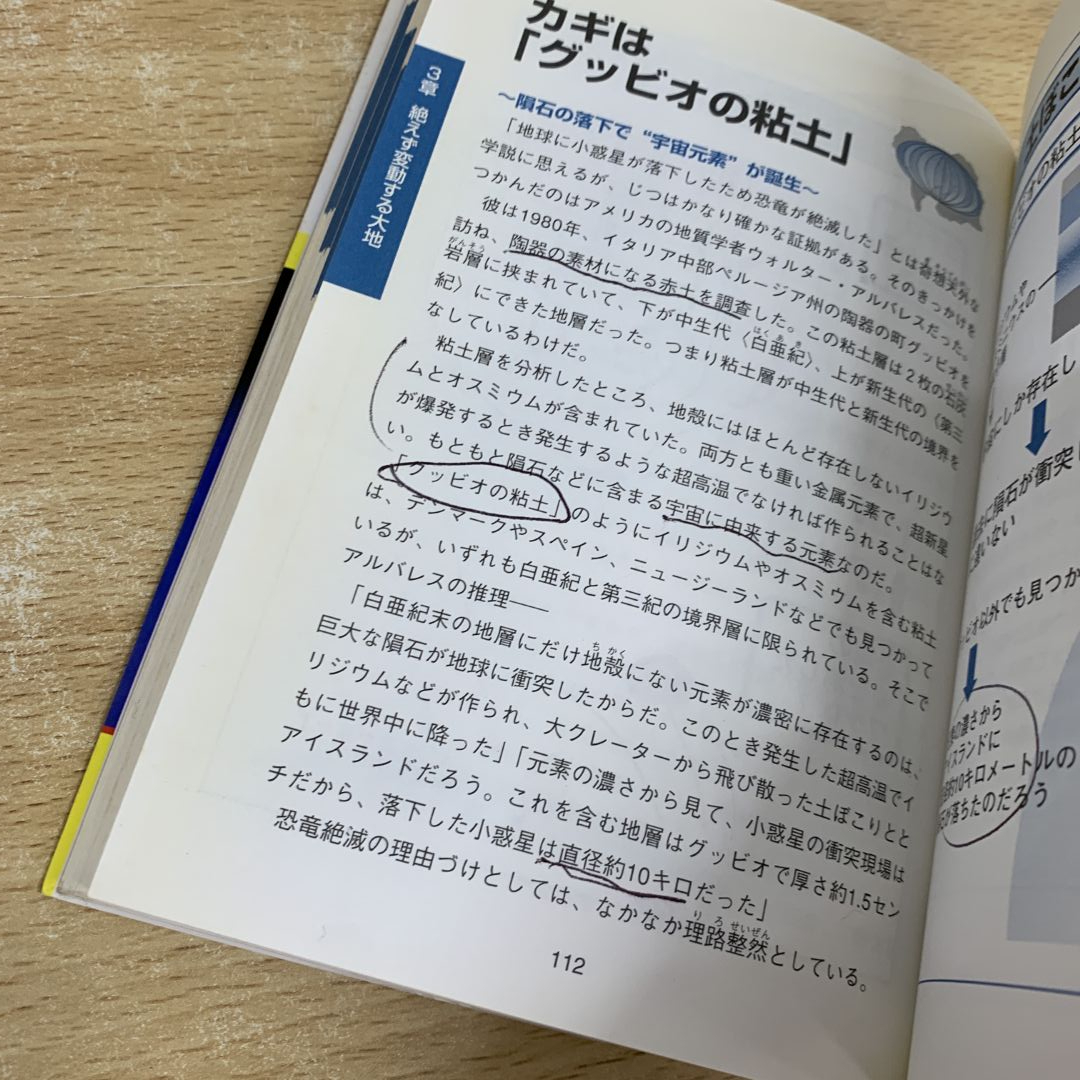 3章 絶えず変動する大地
カギは
「グッビオの粘土」
～隕石の落下で“宇宙元素”が誕生～
「地球に小惑星が落下したため恐竜が絶滅した」とは奇想天外な
学説に思えるが、じつはかなり確かな証拠がある。そのきっかけを
つかんだのはアメリカの地質学者ウォルター・アルバレスだった。
彼は1980年、イタリア中部ペルージア州の陶器の町グッビオを
訪ね、陶器の素材になる赤土を調査した。この粘土層は2枚の石灰
がんそう
岩層に挟まれていて、下が中生代〈白亜紀〉、上が新生代の〈第三
はくあき
紀〉にできた地層だった。つまり粘土層が中生代と新生代の境界を
なしているわけだ。
粘土層を分析したところ、地殻にはほとんど存在しないイリジウ
ムとオスミウムが含まれていた。両方とも重い金属元素で、超新星
が爆発するとき発生するような超高温でなければ作られることはな
い。もともと隕石などに含まる宇宙に由来する元素なのだ。
「グッビオの粘土」のようにイリジウムやオスミウムを含む粘土
は、デンマークやスペイン、ニュージーランドなどでも見つかって
いるが、いずれも白亜紀と第三紀の境界層に限られている。そこで
アルバレスの推理――
ちかく
「白亜紀末の地層にだけ地殻にない元素が濃密に存在するのは、
巨大な隕石が地球に衝突したからだ。このとき発生した超高温でイ
リジウムなどが作られ、大クレーターから飛び散った土ぼこりとと
もに世界中に降った」「元素の濃さから見て、小惑星の衝突現場は
アイスランドだろう。これを含む地層はグッビオで厚さ約1.5セン
チだから、落下した小惑星は直径約10キロだった」
りろせいぜん
恐竜絶滅の理由づけとしては、なかなか理路整然としている。
112
の粘土
にしか存在し
に隕石が衝突
違いない
オ以外でも見つか
の濃さから
イスランドに
約10キロメートルの
が落ちたのだろう